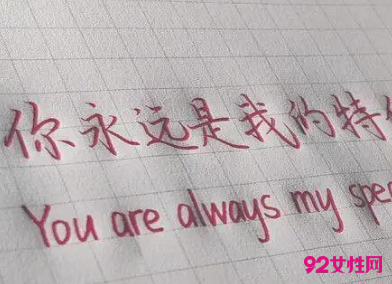 你永远是我的特
You are always my spe
92女性网